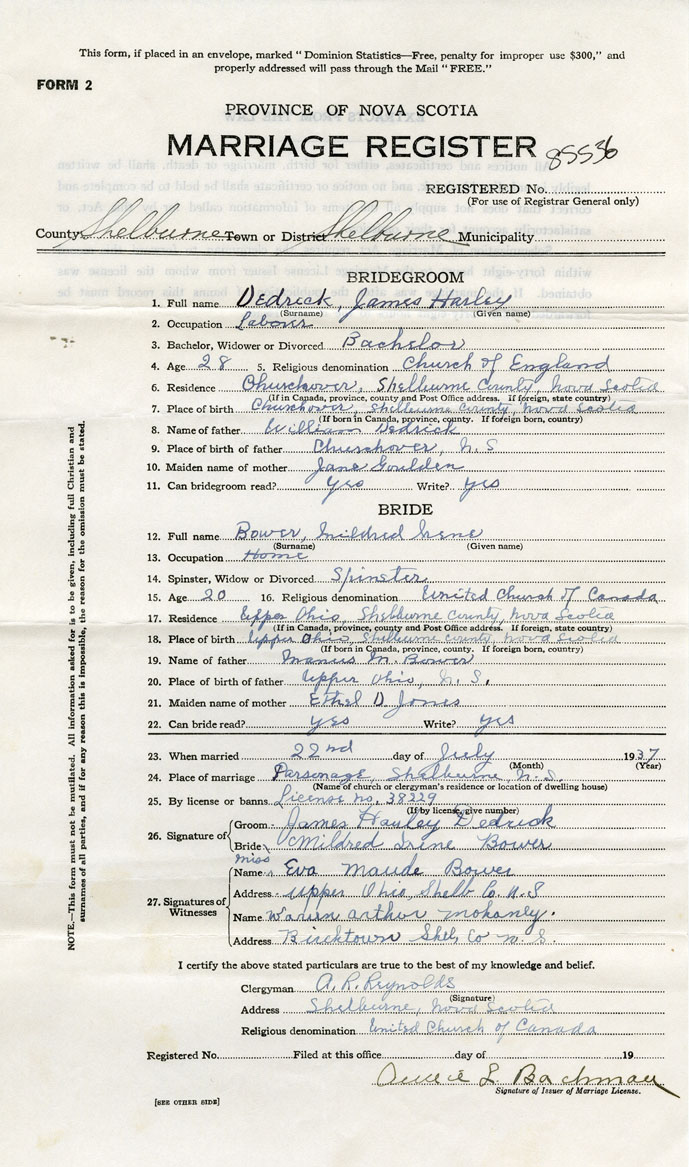 This form, if placed in an envelope, marked "Dominion Statistics—Free, penalty for improper use $300," and
properly addressed will pass through the Mail "FREE."
FORM 2
PROVINCE OF NOVA SCOTIA
MARRIAGE REGISTER 85536
REGISTERED No.
(For use of Registrar General only)
County Shelburne Town or District Shelburne Municipality
BRIDEGROOM
1. Full name Dedrick, James Harley
(Surname) (Given name)
2. Occupation Labourer
3. Bachelor, Widower or Divorced Bachelor
4. Age 28 5. Religious denomination Church of England
6. Residence Churchover, Shelburne County, Nova Scotia
(If in Canada, province, county and Post Office address. If foreign, state country)
7. Place of birth Churchover, Shelburne County, Nova Scotia
(If born in Canada, province, county. If foreign born, country)
8. Name of father William Dedrick
9. Place of birth of father Churchover, N.S
10. Maiden name of mother Jane Goulden
11. Can bridegroom read? yes Write? yes
BRIDE
12. Full name Bower, Mildred Irene
(Surname) (Given name)
13. Occupation Home
14. Spinster, Widow or Divorced Spinster
15. Age 20 16. Religious denomination United Church of Canada
17. Residence Upper Ohio, Shelburne County, Nova Scotia
(If in Canada, province, county and Post Office address. If foreign, state country)
18. Place of birth Upper Ohio, Shelburne County, Nova Scotia
(If born in Canada, province, county. If foreign born, country)
19. Name of father M. Bower
20. Place of birth of father Upper Ohio, N.S.
21. Maiden name of mother Ethel D. Jones
22. Can bride read? yes Write? yes
23. When married 22nd day of July 1937
(Month) (Year)
24. Place of marriage Parsonage, Shelburne, N.S.
(Name of church or clergyman's residence or location of dwelling house)
25. By license or banns License no. 38229
(If by license, give number)
26. Signature of Groom James Harley Dedrick
Bride Mildred Irene Bower
Miss
27. Signatures of Witnesses Name Eva Maude Bower
Address Upper Ohio, Shelb Co. N.S
Name Warren Arthur
Address Birchtown Shel Co N.S.
I certify the above stated particulars are true to the best of my knowledge and belief.
Clergyman A. R. Reynolds
(Signature)
Address Shelburne, Nova Scotia
Religious denomination United Church of Canada
Registered No. Filed at this office day of 19
L. Bachman
Signature of Issuer of Marriage License.
[SEE OTHER SIDE]
NOTE.—This form must not be mutilated. All information asked for is to be given, including full Christian and
surnames of all parties, and if for any reason this is impossible, the reason for the omission must be stated.